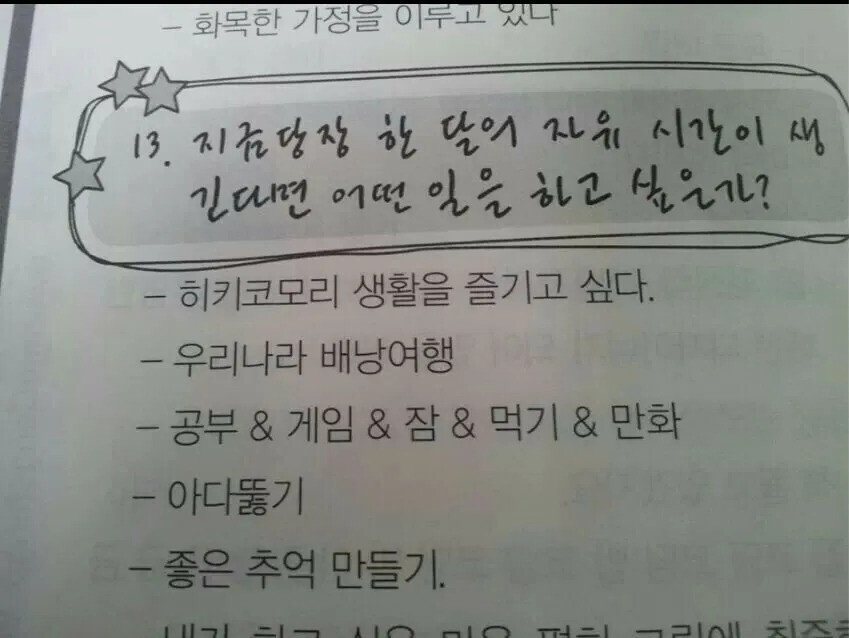 - 화목한 가정을 이루고 있나
13. 지금당장 한 달의 자유 시간이 생
긴다면 어떤 일을 하고 싶은가?
- 히키코모리 생활을 즐기고 싶다.
- 우리나라 배낭여행
- 공부 & 게임 & 잠 & 먹기 & 만화
- 아다뚫기
- 좋은 추억 만들기.
내가 하고 싶은 일을